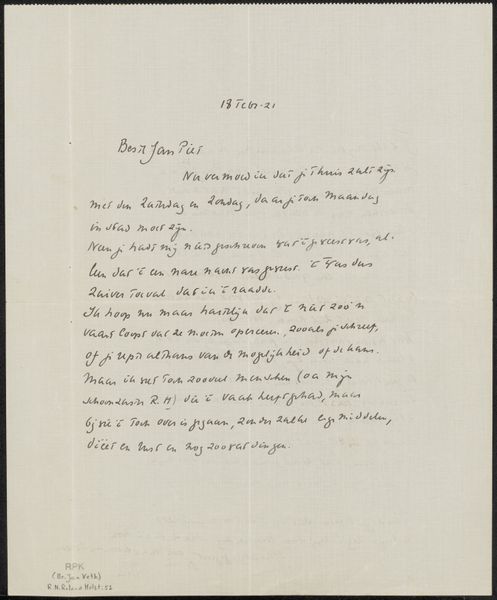 18 Febr-21
Beste Jan Piet
Nu vermoed ik dat je thuis zult zijn
met den Zaterdag en Zondag, daar je toch Maandag
in stad moet zijn.
Neen je hadt mij niets geschreven wat 't geweest was, al-
leen dat 't een nare nacht was geweest. 't Was dus
zuiver toeval dat ik 't raadde.
Ik hoop nu maar hartelijk dat 't niet zoo'n
vaart loopt dat ze moeten opereeren, zooals je schreef,
of je rept althans van de mogelijkheid of de kans.
Maar ik weet toch zooveel menschen (oa mijn
schoonzuster R.H) die 't vaak heeft gehad, maar
bij wie 't toch over is gegaan, zonder zulke erge middelen,
diëet en rust en nog zoo wat dingen.
RPK
(Br. Jan Veth)
R.N. Roland Holst: 52